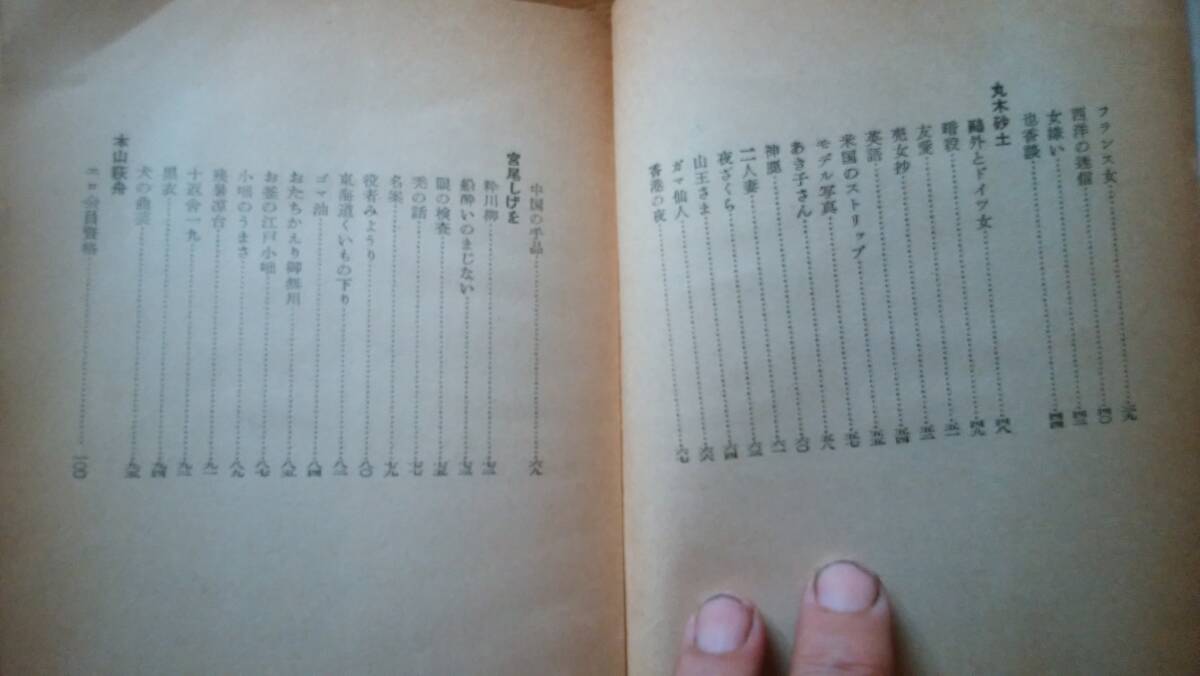 フランス女……三九
西洋の迷信……四〇
女嫌い……四三
也香談……四四
丸木砂土
鷗外とドイツ女……四八
暗殺……四九
友愛……五一
売女抄……五三
英語……五四
米国のストリップ……五五
モデル写真……五七
あき子さん……五八
神罰……六〇
二人妻……六一
夜ざくら……六三
山王さま……六四
ガマ仙人……六六
香港の夜……六七
中国の手品……六八
宮尾しげを
粋川柳……七三
船酔いのまじない……七三
眼の検査……七五
禿の話……七七
名薬……七九
役者みょうり……八〇
東海道くいもの下り……八二
ゴマ油……八四
おたちかえり御無川……八五
お釜の江戸小咄……八七
小咄のうまさ……八九
残暑凉台……九一
十返舎一九……九二
黒衣……九四
犬の曲芸……九五
本山荻舟
エロ会員資格……一〇〇